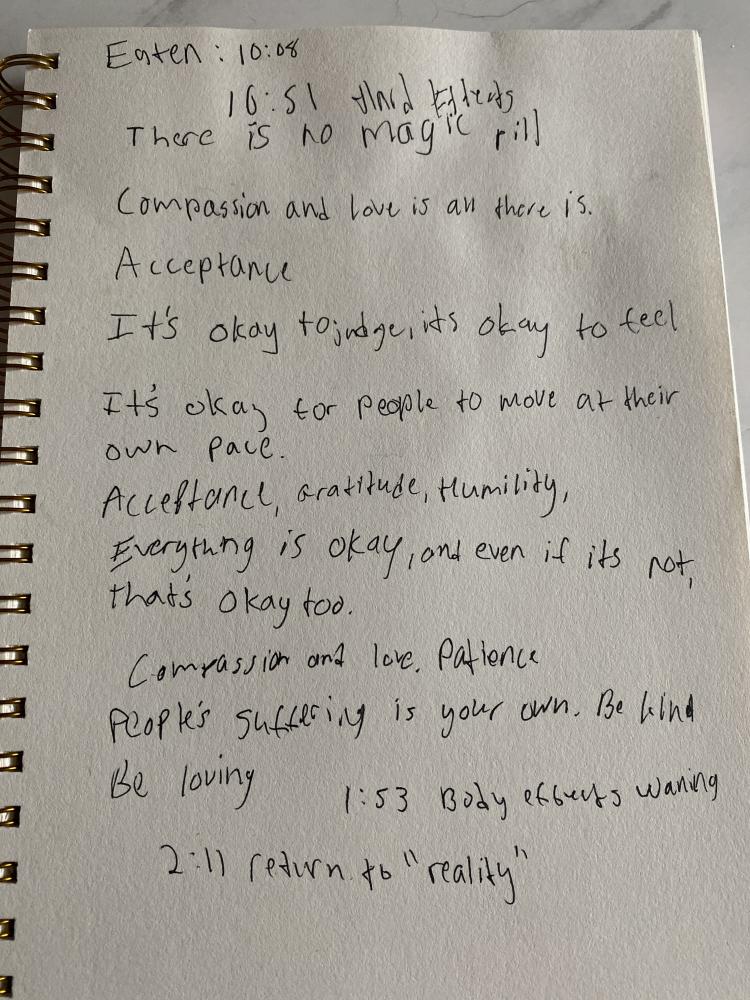 Eaten: 10:08
10:51 Effects
There is no magic pill
Compassion and love is all there is.
Acceptance
It's okay to judge, its okay to feel
It's okay for people to move at their
own pace.
Acceptance, Gratitude, Humility,
Everything is okay, and even if its not,
that's okay too.
Compassion and love. Patience
People's suffering is your own. Be kind
Be loving
1:53 Body effects waning
2:11 return to "reality"